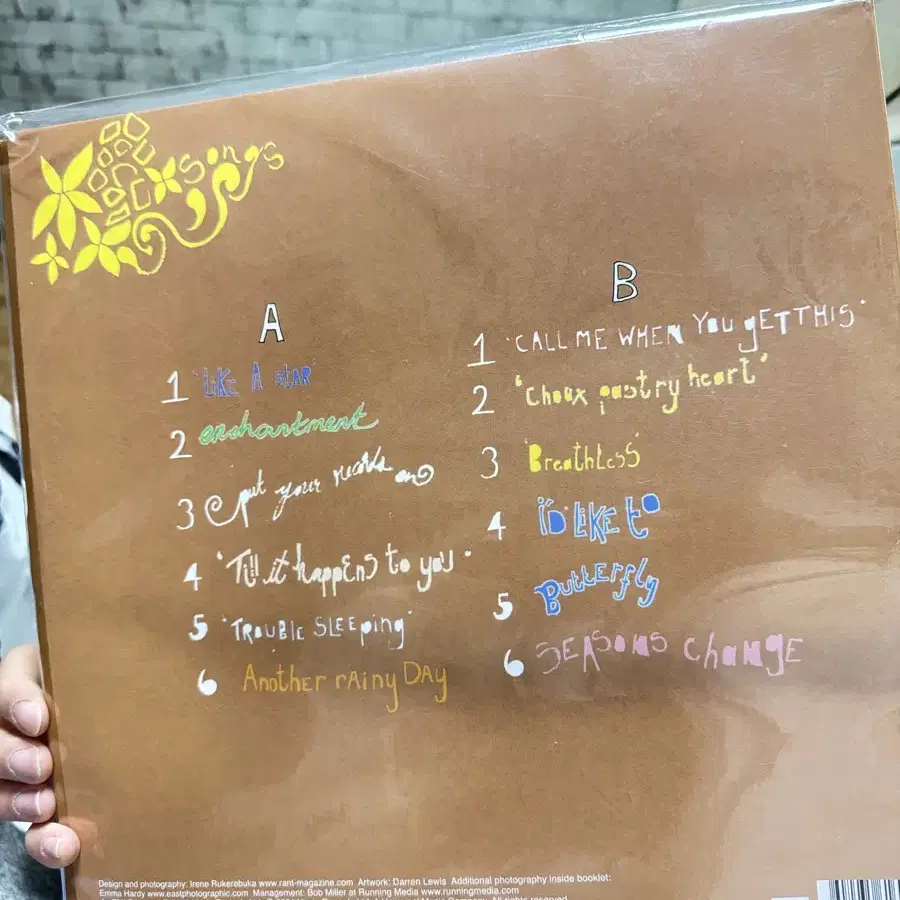 songs
A
1 'LIKE A STAR'
2 enchantment
3 put your records on
4 'Till it happens to you'
5 'TROUBLE SLEEPing'
6 Another rAiny DAY
B
1 'CALL ME WHEN YOU gETTHIS'
2 'choux pastry heart'
3 'BreathLess'
4 i'D LiKE to
5 ButtErfly
6 SEASONS CHaNgE
Design and photography: Irene Rukerebuka www.rant-magazine.com Artwork: Darren Lewis Additional photography inside booklet:
Emma Hardy www.eastphotographic.com Management: Bob Miller at Running Media www.runningmedia.com